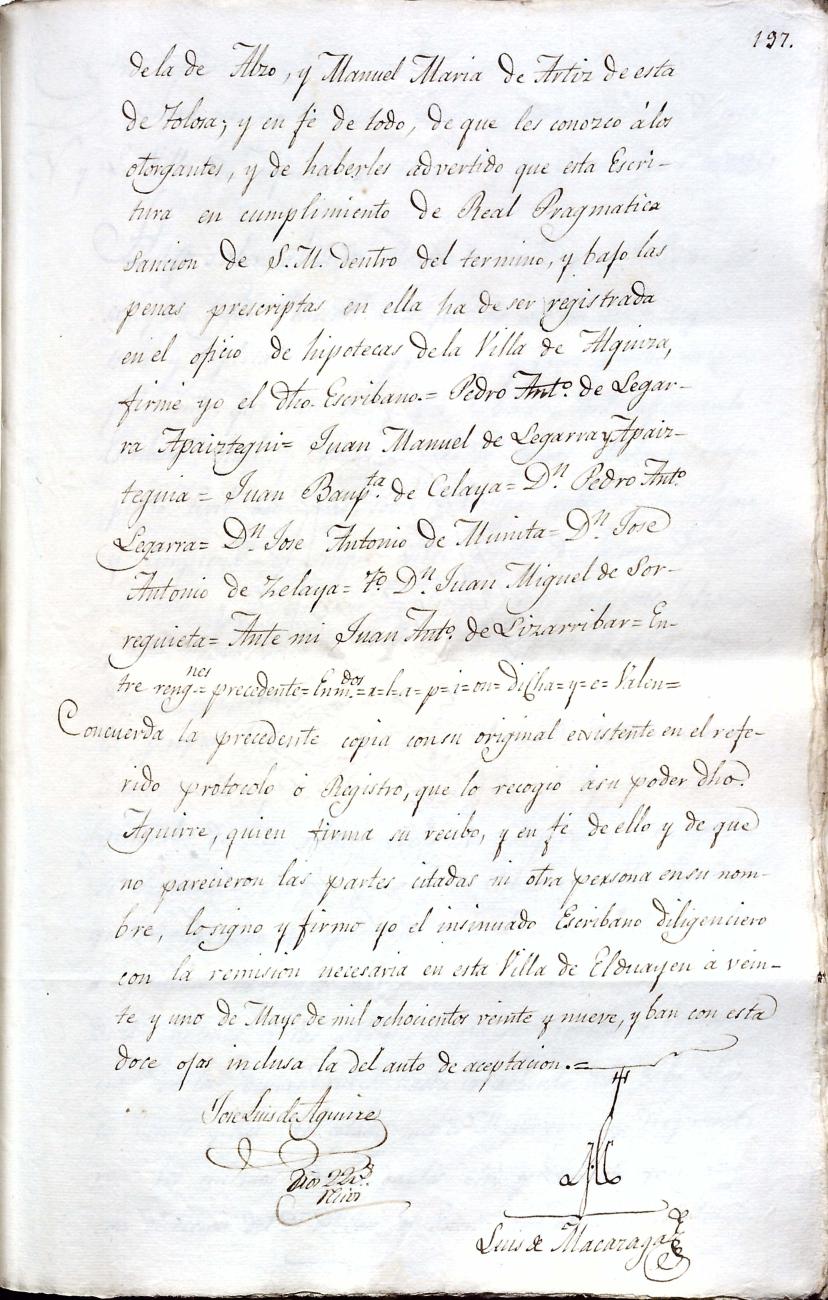 197.
dela de Alzo, y Manuel Maria de Artiz de esta
de Tolosa; y en fé de todo, de que les conozco á los
otorgantes, y de haberles advertido que esta Escri-
tura en cumplimiento de Real Pragmatica
Sancion de S.M. dentro del termino, y bajo las
penas prescriptas en ella ha de ser registrada
en el oficio de hipotecas dela Villa de Alquiza,
firmé yo el dho. Escribano.= Pedro Anto. de Legar-
ra Apaiztegui= Juan Manuel de Legarra y Apaiz-
teguia = Juan Baupta. de Celaya= Dn. Pedro Anto.
Legarra= Dn. Jose Antonio de Munita= Dn. Jose
Antonio de Zelaya= To. Dn. Juan Miguel de Sor-
reguieta= Ante mi Juan Anto. de Lizarribar= En-
tre rengnes.= precedente= Enmdos.=a=l=a=p=i=on=dicha=y=e=Valen=
Concuerda la precedente copia con su original existente en el refe-
rido protocolo ó Registro, que lo recogio ásu poder dho.
Aguirre, quien firma su recibo, y en fé de ello y de que
no parecieron las partes citadas ni otra persona ensu nom-
bre, losigno y firmo yo el insinuado Escribano diligenciero
con la remision necesaria en esta Villa de Elduayen á vein-
te y uno de Mayo de mil ochocientos veinte y nueve, y ban con esta
doce ojas inclusa la del auto de aceptacion.=
Jose Luis de Aguirre
Dros 22 rs.
Luis de Macazaga